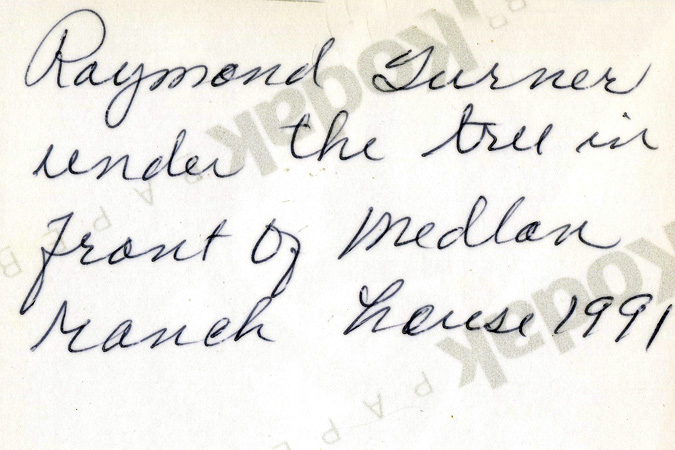 Raymond Turner
under the tree in
front of Medlan
ranch house 1991
Kodak
Kodak
Kodak
PAPER